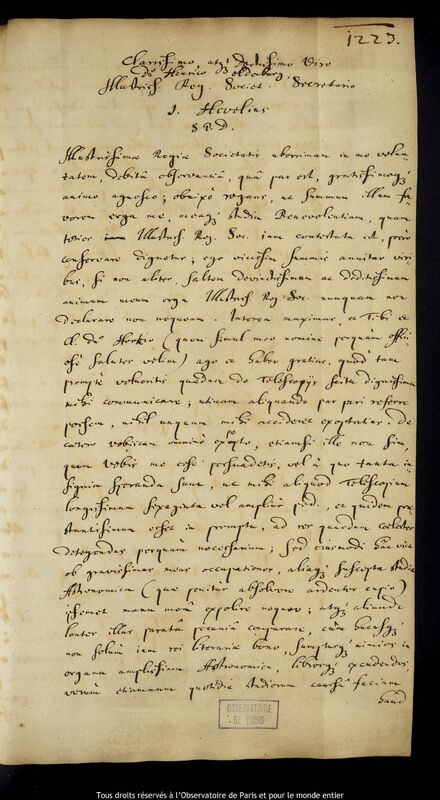 1223.
Clarissimo, atq; Doctissimo Viro
Dn. Henrico Oldenburg,
Illustriss. Reg. Societ. Secretario
J. Hevelius
S. P. D.
Illustrissimæ Regiæ Societatis uberrimam in me volun-
tatem, debitâ observantiâ, quâ par est, gratissimoq;
animo agnosco; obnixè rogans, ut summum illum fa-
vorem erga me, meaq; studia Benevolentiam, quam
toties Illustriss. Reg. Soc. iam contestata est, porrò
conservare dignetur; ego vicissim summis annitar viri-
bus, si non aliter, saltem devinctissimum ac deditissimum
animum meum erga Illustriss. Reg. Soc. nunquam non
declarare non nequeam. Interea maximas, et Tibi et
Cl. Dn. Hookio (quem simul meo nomine perquàm offici-
osè salutes velim) ago et habeo gratias, quod tam
promptè volueritis quædam de Telescopijs scitu dignissima
mihi communicare; utinam aliquando par pari referre
possem, nihil unquam mihi accideret exoptatius. De
cætero vobiscum omninò opto, etiamsi ille non sim,
quem vobis me esse persuadetis, vel à quo tanta in-
signia speranda sunt, ut mihi aliquod Telescopium
longissimum sexaginta vel amplius ped., et quidem præ-
stantissimum esset in promptu, ad res quasdam cælestes
detegendas perquàm necessarium; sed eiusmodi hac vice
ob gravissimas meas occupationes, aliaq; suscepta studia
Astronomica (quæ penitus absolvere ardenter cupio)
ipsemet manu meâ expolire nequeo; atq; aliunde
lentes illas paratâ pecuniâ comparare, cùm hucusq;
non solùm iam rei literariæ bono, sumptusq; nimios in
organa amplissima Astronomica, librosq; expendendos,
verùm etiamnum quotidie studiorum causâ faciam
haud
OBSERVATOIRE
DE PARIS
Tous droits réservés à l'Observatoire de Paris et pour le monde entier